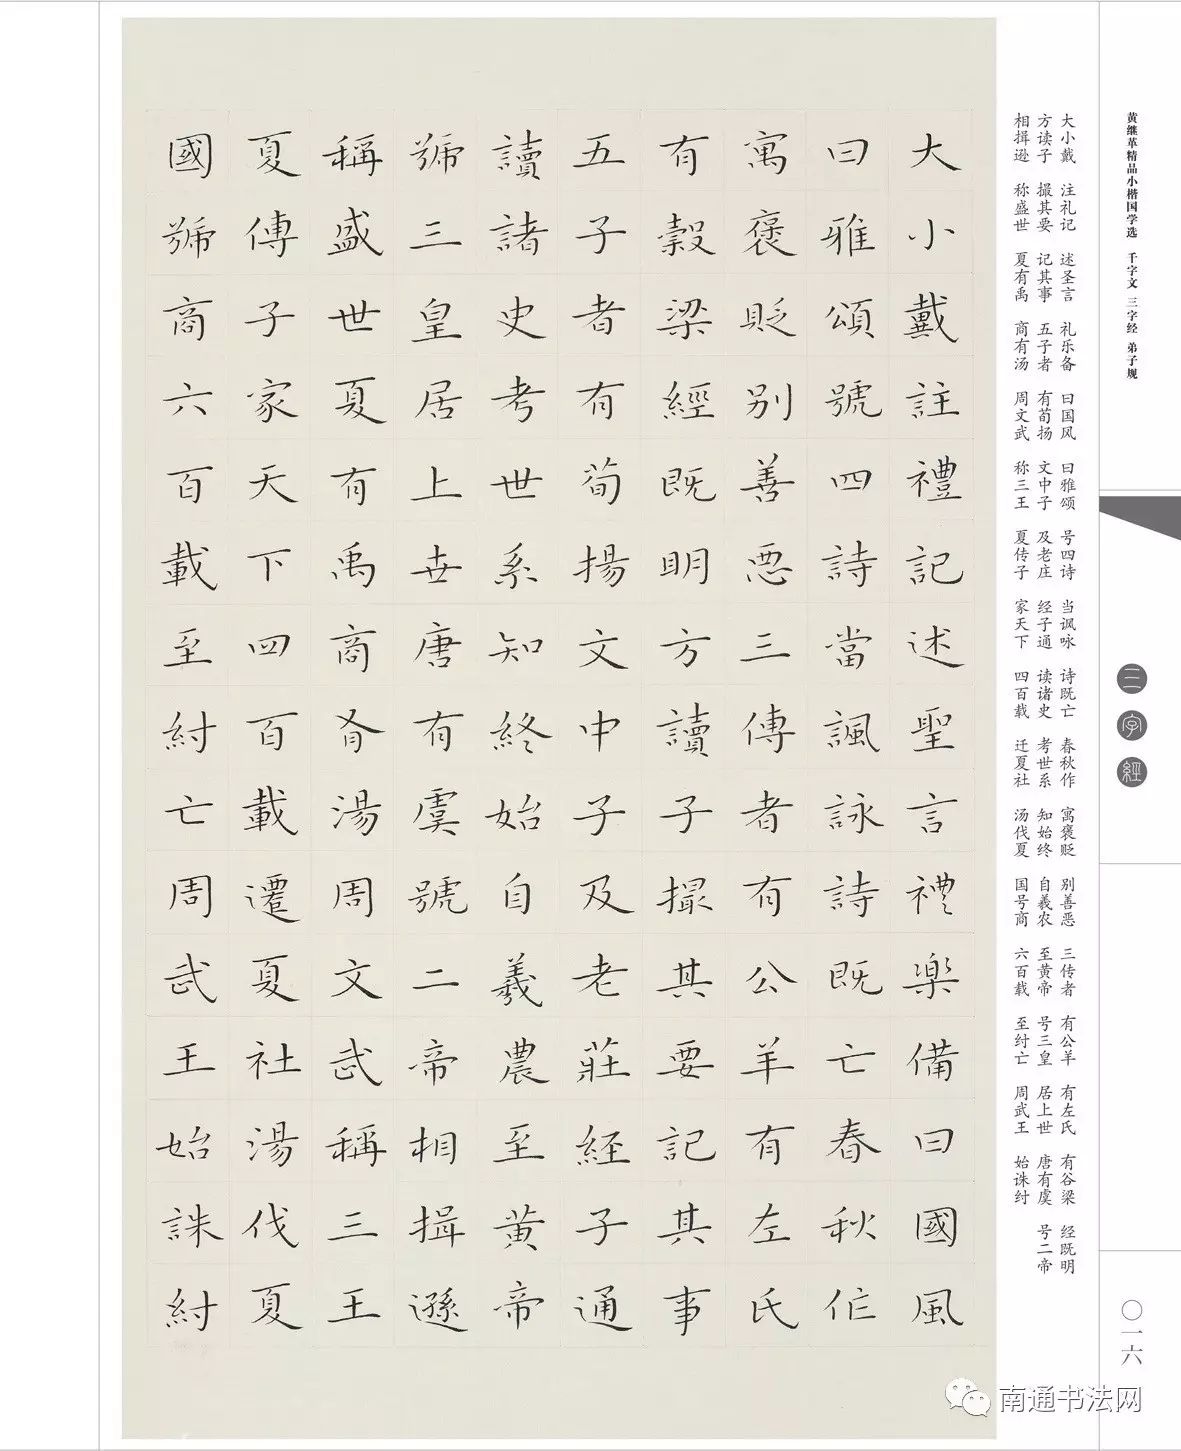 黄继革精品小楷国学选 千字文 三字经 弟子规
三字經
〇一六
大小戴 注礼记 述圣言 礼乐备 曰国风 曰雅颂 号四诗 当讽咏 诗既亡 春秋作 寓褒贬 别善恶 三传者 有公羊 有左氏 有谷梁 经既明
方读子 撮其要 记其事 五子者 有荀扬 文中子 及老庄 经子通 读诸史 考世系 知始终 自羲农 至黄帝 号三皇 居上世 唐有虞 号二帝
相揖逊 称盛世 夏有禹 商有汤 周文武 称三王 夏传子 家天下 四百载 迁夏社 汤伐夏 国号商 六百载 至纣亡 周武王 始诛纣
大小戴註禮記述聖言禮楽備曰國風
曰雅頌號四詩當諷詠詩既亡春秋作
寓褒貶别善悪三傳者有公羊有左氏
有穀梁經既明方讀子撮其要記其事
五子者有荀揚文中子及老莊経子通
讀諸史考世系知終始自羲農至黄帝
號三皇居上世唐有虞號二帝相揖遜
稱盛世夏有禹商有湯周文武稱三王
夏傳子家天下四百載遷夏社湯伐夏
國號商六百載至紂亡周武王始誅紂
南通书法网